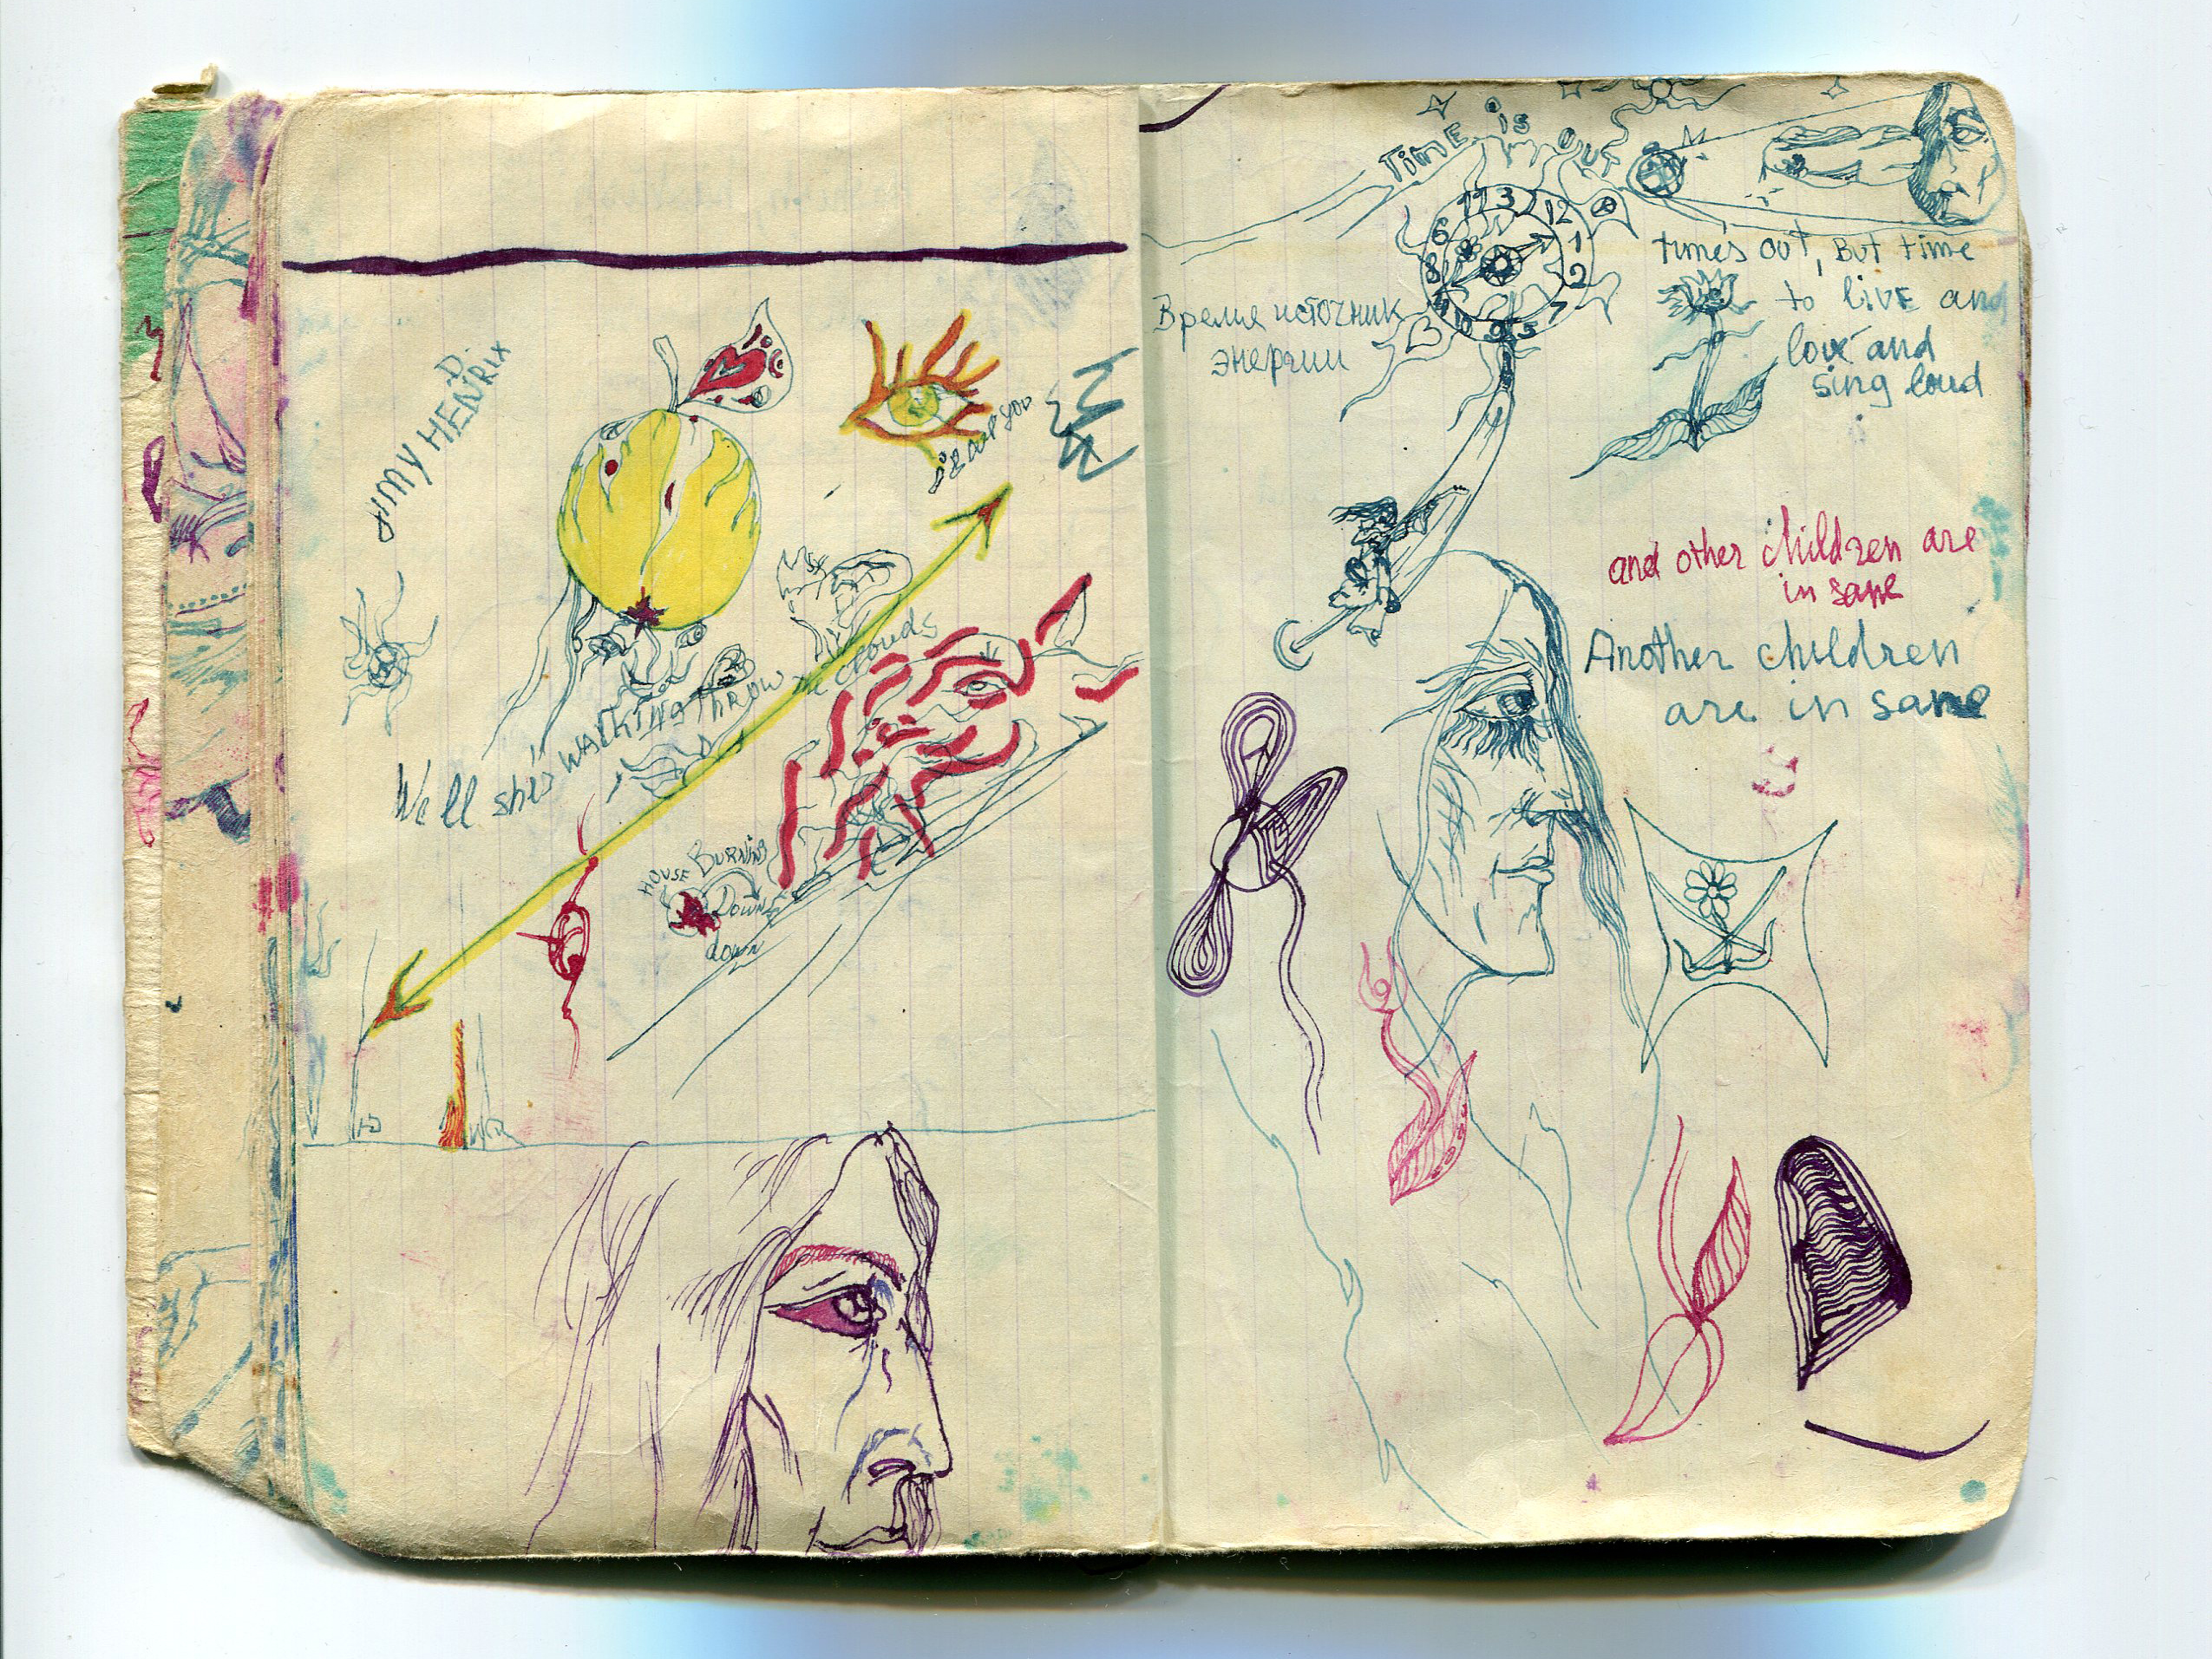 JIMY HENDRIX
We'll she's WALKING THROW THE CLOUDS
HOUSE BURNING
DOWN
down
TiME is OUT
11 3 12 1 2 7 5 9 10 4 8 6
Время источник
энергии
time's out, But time
to LIVE and
love and
sing loud
and other children are
in sane
Another children
are in sane